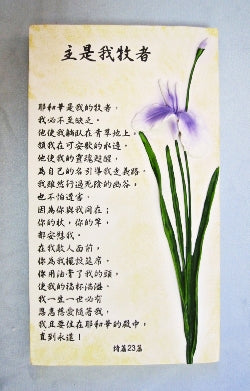 主是我牧者
耶和華是我的牧者，
我必不至缺乏。
他使我躺臥在青草地上，
領我在可安歇的水邊。
他使我的靈魂甦醒，
為自己的名引導我走義路。
我雖然行過死陰的幽谷，
也不怕遭害，
因為你與我同在；
你的杖，你的竿，
都安慰我。
在我敵人面前，
你為我擺設筵席。
你用油膏了我的頭，
使我的福杯滿溢。
我一生一世必有
恩惠慈愛隨著我，
我且要住在耶和華的殿中，
直到永遠！
詩篇23篇